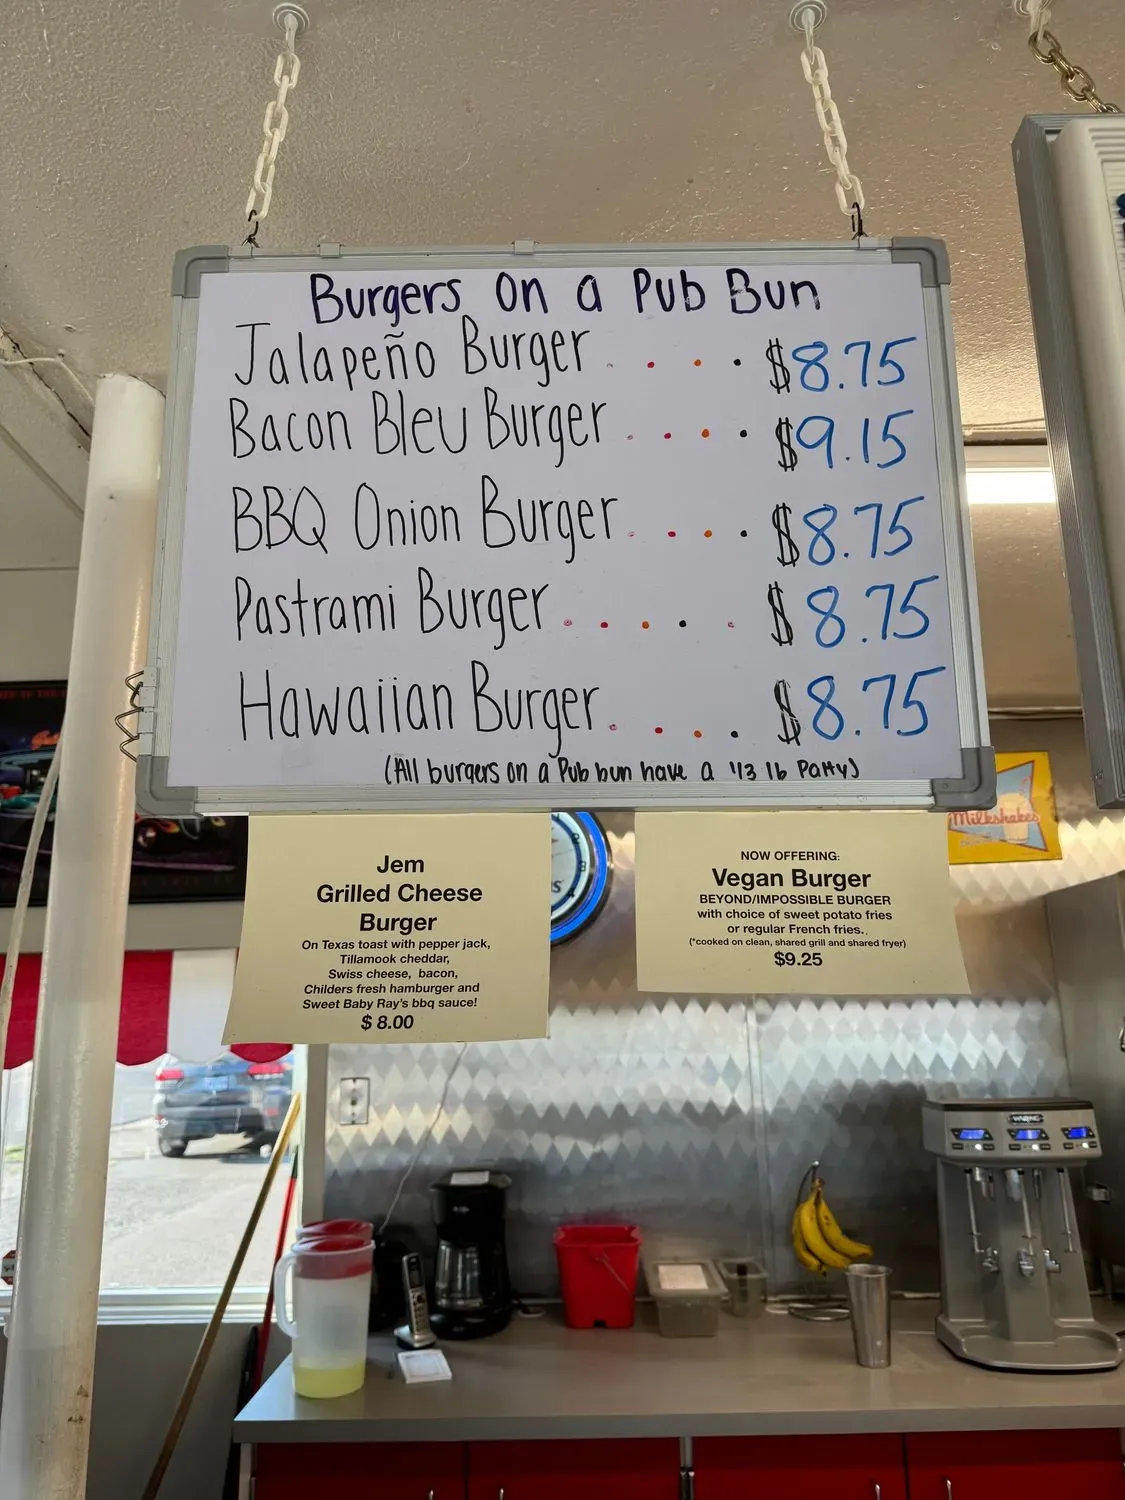 Burgers on a Pub Bun
Jalapeño Burger . . . . $8.75
Bacon Bleu Burger . . . . $9.15
BBQ Onion Burger . . . . $8.75
Pastrami Burger . . . . . $8.75
Hawaiian Burger . . . . $8.75
(All burgers on a Pub bun have a 1/3 lb Patty)
Jem
Grilled Cheese
Burger
On Texas toast with pepper jack,
Tillamook cheddar,
Swiss cheese, bacon,
Childers fresh hamburger and
Sweet Baby Ray's bbq sauce!
$ 8.00
NOW OFFERING:
Vegan Burger
BEYOND/IMPOSSIBLE BURGER
with choice of sweet potato fries
or regular French fries..
(*cooked on clean, shared grill and shared fryer)
$9.25
Milkshakes
WARING